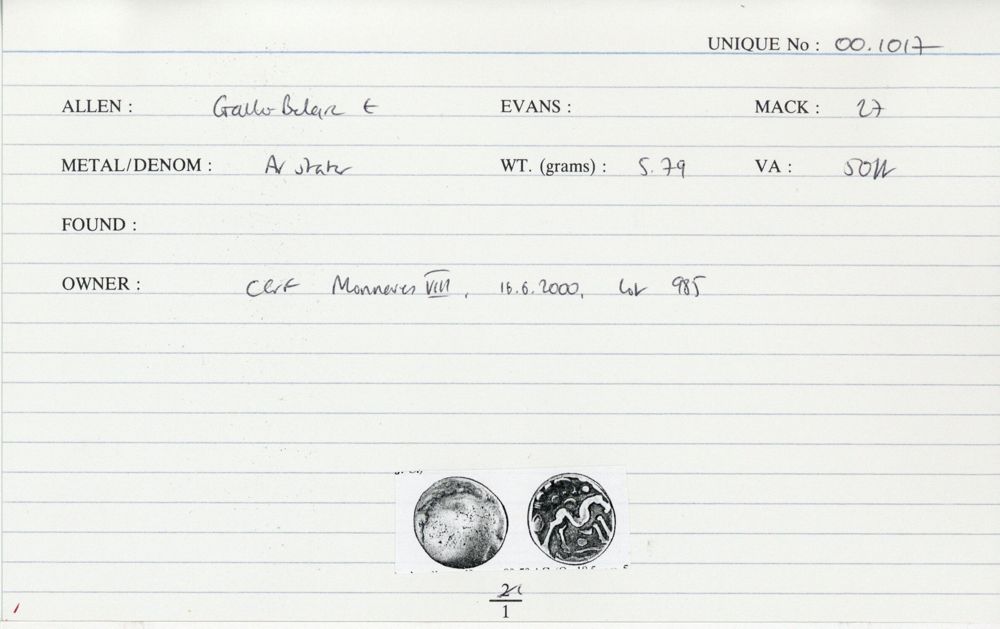 UNIQUE No : 00.1017
ALLEN : Gallo-Belgic E EVANS : MACK : 27
METAL/DENOM : AV stater WT. (grams) : 5.79 VA :
FOUND :
OWNER : CGF Monnaies VIII, 16.6.2000, lot 985
2
1